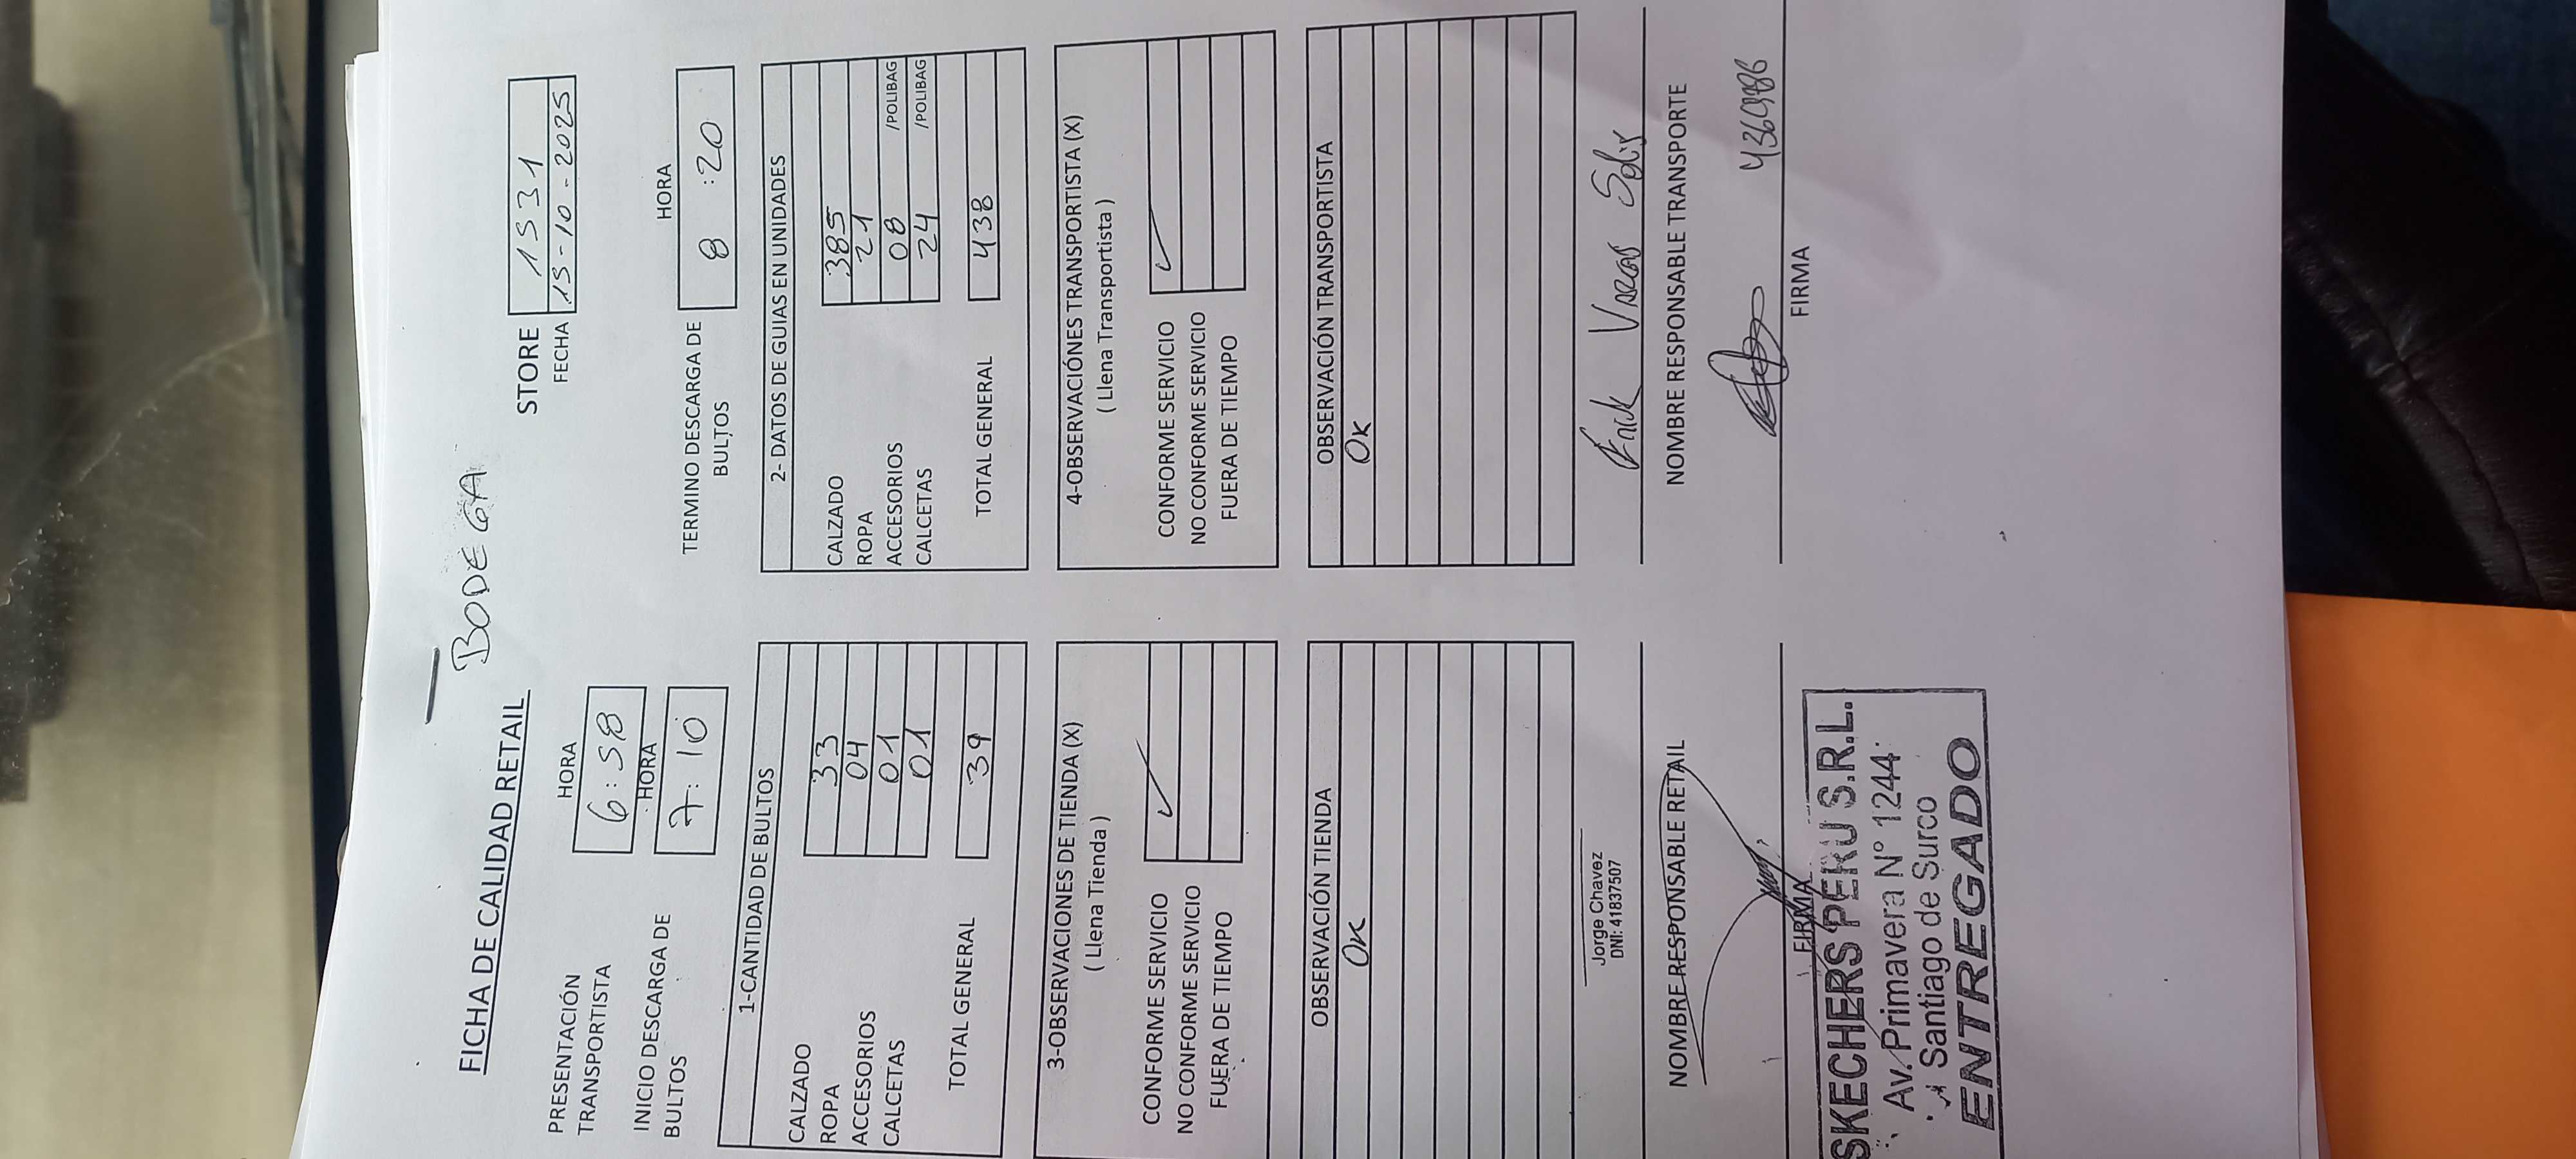 BODEGA
FICHA DE CALIDAD RETAIL
STORE 1331
FECHA 15-10-2025
PRESENTACIÓN TRANSPORTISTA
HORA
6:58
INICIO DESCARGA DE BULTOS
HORA
7:10
TERMINO DESCARGA DE BULTOS
HORA
8:20
1-CANTIDAD DE BULTOS
CALZADO 33
ROPA 04
ACCESORIOS 01
CALCETAS 01
TOTAL GENERAL 39
2- DATOS DE GUIAS EN UNIDADES
CALZADO 385
ROPA 21
ACCESORIOS 08 /POLIBAG
CALCETAS 24 /POLIBAG
TOTAL GENERAL 438
3-OBSERVACIONES DE TIENDA (X)
( Llena Tienda )
CONFORME SERVICIO ✓
NO CONFORME SERVICIO
FUERA DE TIEMPO
4-OBSERVACIÓNES TRANSPORTISTA (X)
( Llena Transportista )
CONFORME SERVICIO ✓
NO CONFORME SERVICIO
FUERA DE TIEMPO
OBSERVACIÓN TIENDA
OK
OBSERVACIÓN TRANSPORTISTA
OK
Jorge Chavez
DNI: 41837507
NOMBRE RESPONSABLE RETAIL
FIRMA
Vargas Solis
NOMBRE RESPONSABLE TRANSPORTE
FIRMA
SKECHERS PERU S.R.L.
Av. Primavera N° 1244
Santiago de Surco
ENTREGADO